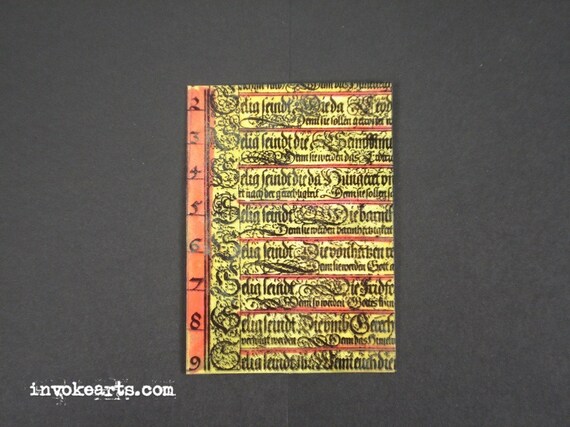 2 Selig seindt Die da Leyd
Denn sie sollen getröstet w
3 Selig seindt die Senfftmu
Denn sie werden das Erdtri
4 Selig seindt die da Hungert vn
et nach der gerechtigkeit. Denn sie sollen
5 Selig seindt Die barmh
Denn sie werden barmhertzigkeit
6 Selig seindt Die von hertzen re
Denn sie werden Gott a
7 Selig seindt Die Fridfe
Denn sy werden Gottes kin
8 Selig seindt Die vmb Gerech
verfolgt werden Denn das Himelr
9 Selig seindt ihr Wenn euch die
invokearts.com